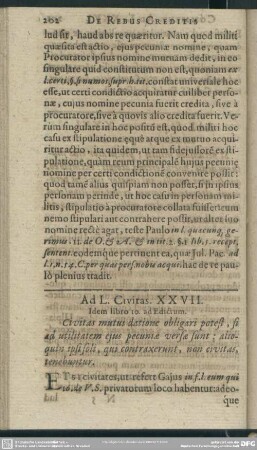 202 DE REBUS CREDITIS
lud sit, haud abs re quæritur. Nam quod militi
quæsita est actio, ejus pecuniæ nomine, quam
Procurator ipsius nomine mutuam dedit, in eo
singulare quid constitutum non est, quoniam ex
l. certi, §. si numos, supr. h. tit. constat universale hoc
esse, ut certi condictio acquiratur cuilibet perso-
næ, cujus nomine pecunia fuerit credita, sive à
procuratore, sive à quovis alio credita fuerit. Ve-
rùm singulare in hoc positū est, quod militi hoc
casu ex stipulatione æquè atque ex mutuo acqui-
ritur actio, ita quidem, ut tam fidejussorē ex sti-
pulatione, quàm reum principalē hujus pecuniæ
nomine per certi condictionē convenire possit:
quod tamē alius quispiam non posset, si in ipsius
personam
nemo stipulari aut contrahere possit, ut alter suo
nomine rectè agat, teste Paulo in l. quæcunq, ge-
rimus. 11. de O. & A. & in tit. 2. §. 1. lib. 5. recept.
sentent. eodemque pertinent ea, quæ Jul. Pac. ad
L. 1. n. 14. C. per quas pers. nobis acqui. hac de re pau-
lò pleniùs tradit.
Ad L. Civitas. XXVII.
Idem libro 10. ad Edictum.
Civitas mutui datione obligari potest, si
ad utilitatem ejus pecuniæ versæ sunt; alio-
quin ipsi soli, qui contraxerunt, non civitas,
tenebuntur.
ETSI civitates, ut refert Gajus in l. eum qui
16. de V. S. privatorum loco habentur: adeo-
que